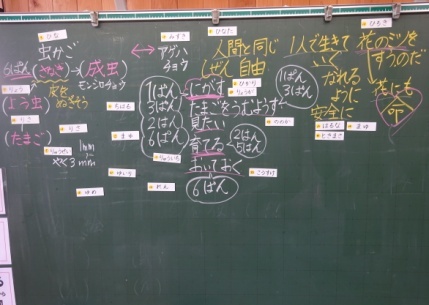 虫かご
6ぱん(さなぎ)→(成虫)
モンシロチョウ
(よう虫)
皮を
ぬぎそう
(たまご)
1mm
3mm
↔ アゲハ
チョウ
人間と同じ
しぜん 自由
1人で生きて
いく
なれる
ように
安全に
花のミツを
すうのだ
花にも
命
1ぱん
3ぱん
2ぱん
6ぱん
にがす
たまごをうむようす
見たい
育てる
おいておく
6ぱん
1ぱん
3ぱん
2ぱん
5ぱん
ひな
みすき
ひなた
りょう
りさ
りさ
ちはる
まゆ
りゅういち
ゆいう
ゆめ
れん
ひかり
ののか
こうすけ
はるな
まゆ
ときまさ